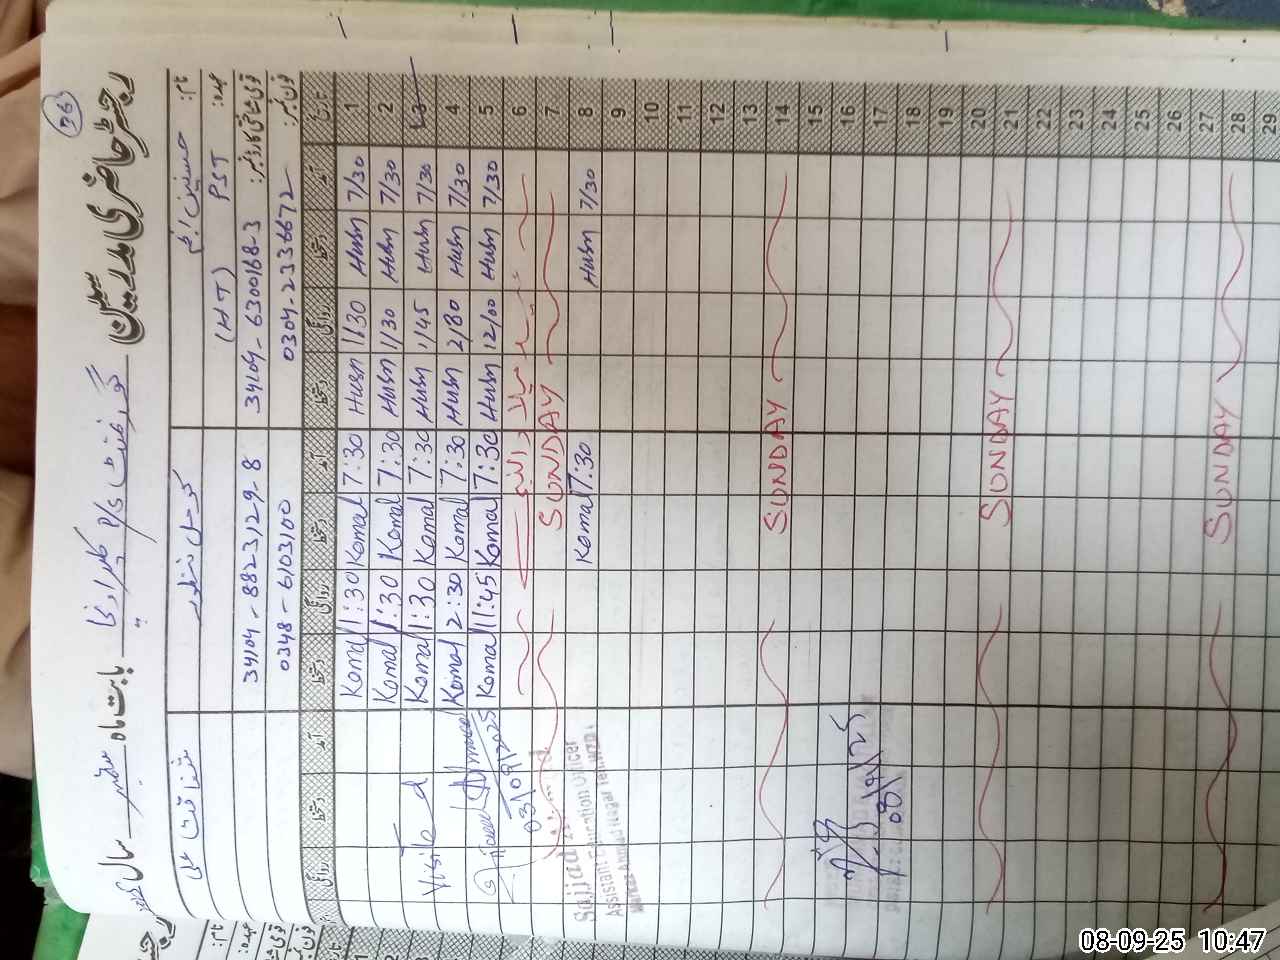 36
رجسٹر حاضری مدرسین
گورنمنٹ P/S بابت ماہ ستمبر سال
نام: حسنین PST (HT) کومل منظور شفاقت علی
عہدہ:
قومی شناختی کارڈ نمبر: 34104-6300168-3 34104-8823129-8
فون نمبر: 0304-2336672 0348-6103100
تاریخ آمد دستخط روانگی دستخط آمد دستخط روانگی دستخط آمد دستخط روانگی
1 7/30 Husn 1/30 Husn 7:30 Komal 1:30 Komal
2 7/30 Husn 1/30 Husn 7:30 Komal 1:30 Komal
3 7/30 Husn 1/45 Husn 7:30 Komal 1:30 Komal Visited
4 7/30 Husn 2/80 Husn 7:30 Komal 2:30 Komal
5 7/30 Husn 12/00 Husn 7:30 Komal 11:45 Komal
6 03/09/2025
7 SUNDAY
8 7/30 Husn Komal 7:30 Sajjad
Assistant Education Officer
9
10
11
12
13
14 SUNDAY
15
16
17 08/9/25
18
19
20
21 SUNDAY
22
23
24
25
26
27
28 SUNDAY
29
08-09-25 10:47